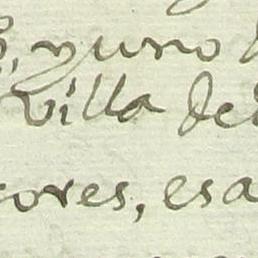 , y uno
Villa de
ores, esa